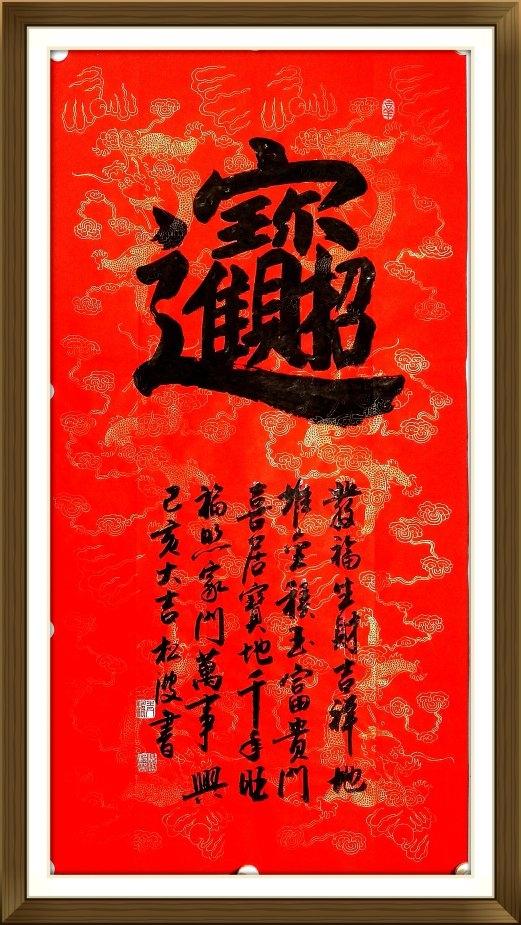 招財進寶
發福生財吉祥地
堆金積玉富貴門
喜居寶地千年旺
福照家門萬事興
己亥大吉松波書